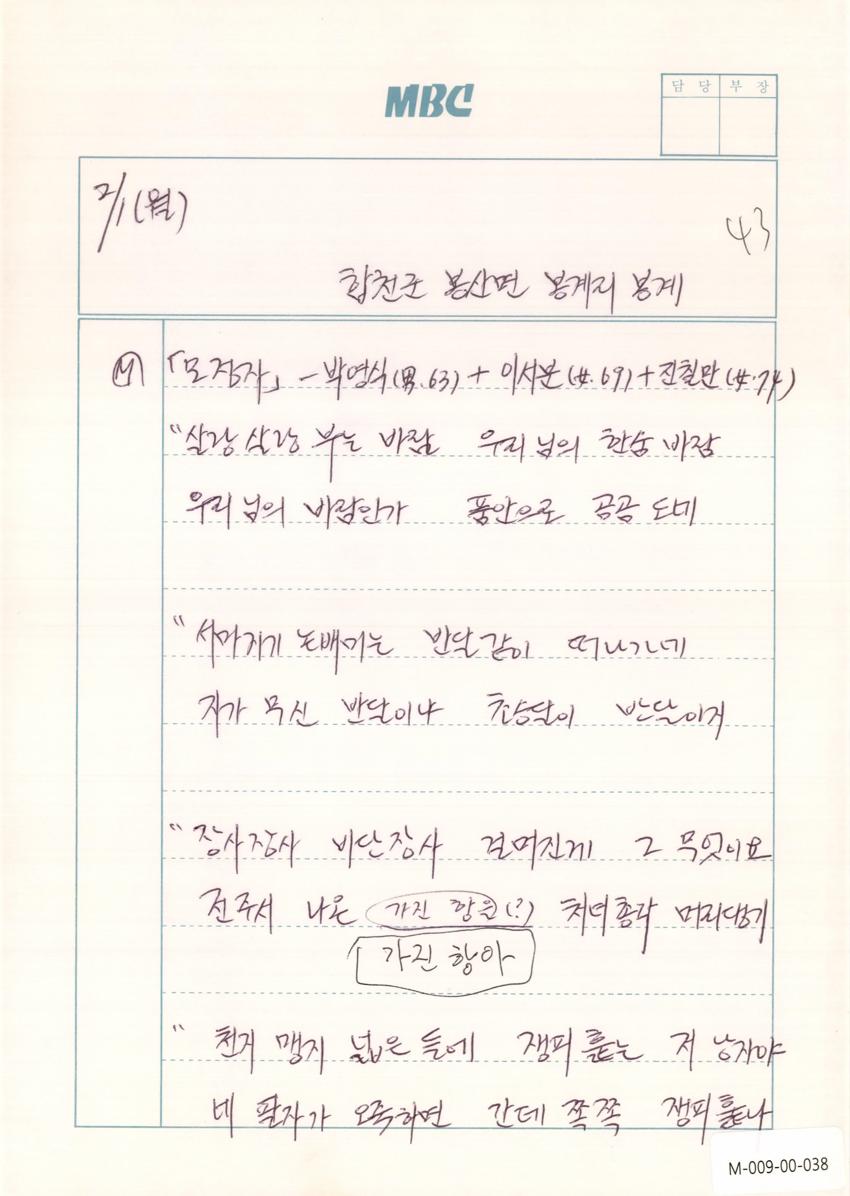 MBC
담 당 부 장
2/1(월)
43
합천군 봉산면 봉계리 봉계
Ⓜ 「모정자」 - 박영식(男.63) + 이서분(女.69) + 진칠만(女.74)
"살랑 살랑 부는 바람 우리 님의 한숨 바람
우리 님의 바람인가 품안으로 공공 도네
"서마지기 논배미는 반달같이 떠나가네
지가 무신 반달이냐 초승달이 반달이지
"장사장사 비단장사 걸머진게 그 무엇이요
전주서 나온 가진 항을(?) 처녀총각 머리댕기
가진 항아
" 천지 맹지 넓은 들에 쟁피 훑는 저 낭자야
네 팔자가 오죽하면 간데 쪽쪽 쟁피 훑나
M-009-00-038